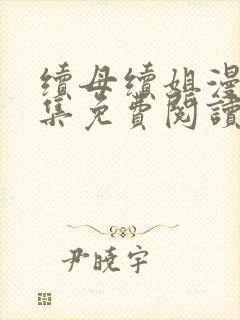 續母續姐漫
集免費閱讀
尹曉宇